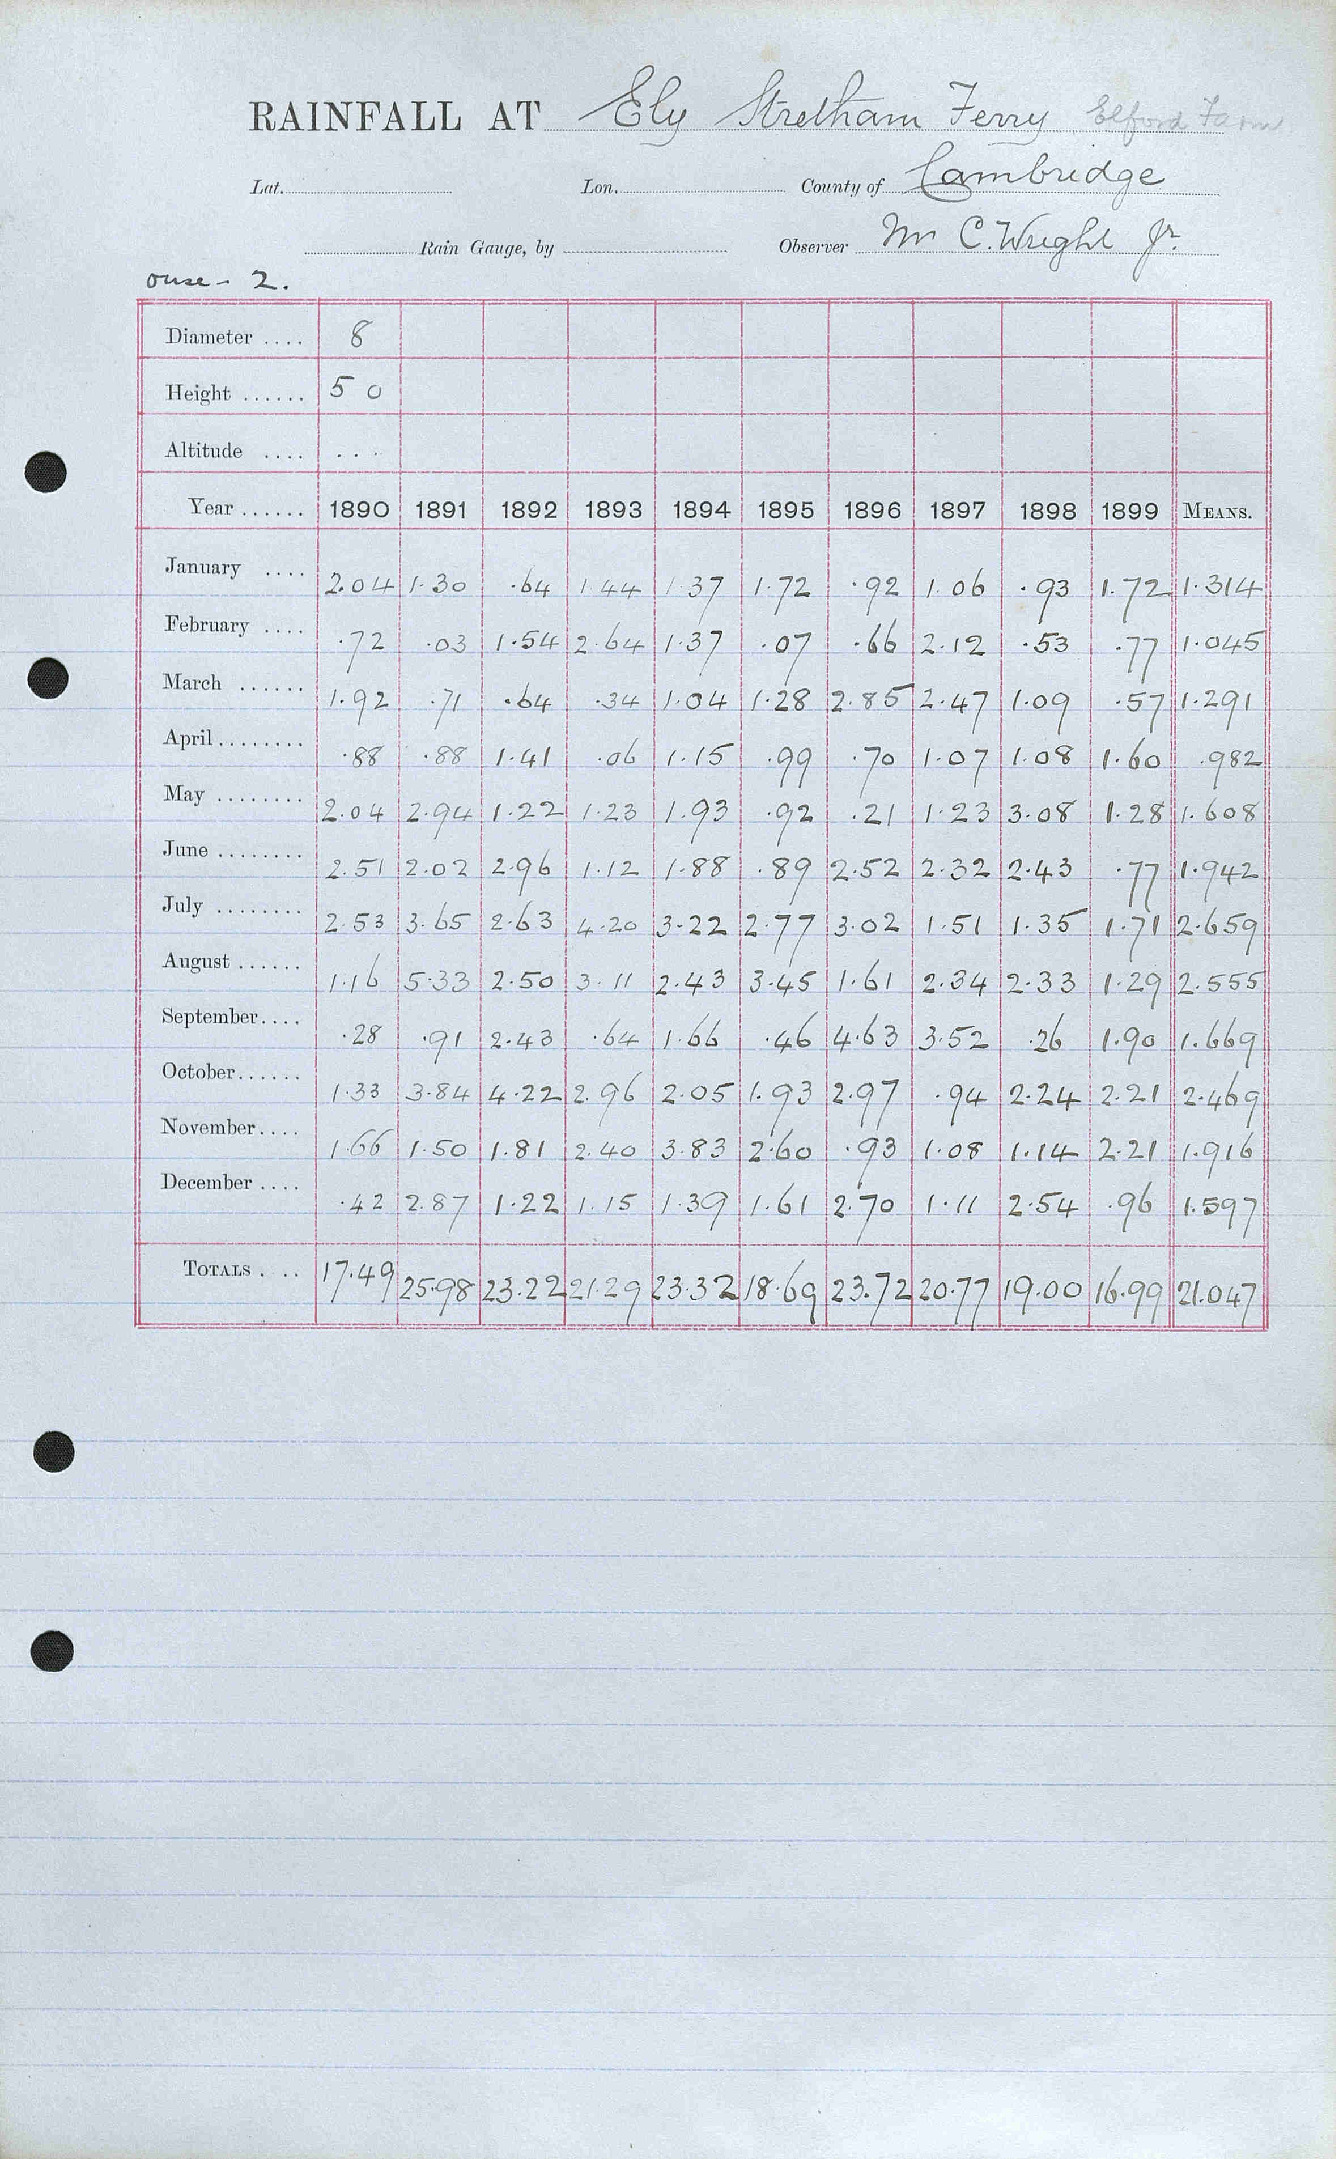 RAINFALL AT Ely Stretham Ferry Elford Farm
Lat. Lon. County of Cambridge
Rain Gauge, by Observer Mr C. Wright Jr.
ouse - 2.
Diameter .... 8
Height ...... 5 0
Altitude .... ...
Year ...... 1890 1891 1892 1893 1894 1895 1896 1897 1898 1899 MEANS.
January .... 2.04 1.30 .64 1.44 1.37 1.72 .92 1.06 .93 1.72 1.314
February .... .72 .03 1.54 2.64 1.37 .07 .66 2.12 .53 .77 1.045
March ...... 1.92 .71 .64 .34 1.04 1.28 2.85 2.47 1.09 .57 1.291
April ........ .88 .88 1.41 .06 1.15 .99 .70 1.07 1.08 1.60 .982
May ........ 2.04 2.94 1.22 1.23 1.93 .92 .21 1.23 3.08 1.28 1.608
June ........ 2.51 2.02 2.96 1.12 1.88 .89 2.52 2.32 2.43 .77 1.942
July ........ 2.53 3.65 2.63 4.20 3.22 2.77 3.02 1.51 1.35 1.71 2.659
August ...... 1.16 5.33 2.50 3.11 2.43 3.45 1.61 2.34 2.33 1.29 2.555
September.... .28 .91 2.43 .64 1.66 .46 4.63 3.52 .26 1.90 1.669
October...... 1.33 3.84 4.22 2.96 2.05 1.93 2.97 .94 2.24 2.21 2.469
November.... 1.66 1.50 1.81 2.40 3.83 2.60 .93 1.08 1.14 2.21 1.916
December .... .42 2.87 1.22 1.15 1.39 1.61 2.70 1.11 2.54 .96 1.597
TOTALS . .. 17.49 25.98 23.22 21.29 23.32 18.69 23.72 20.77 19.00 16.99 21.047